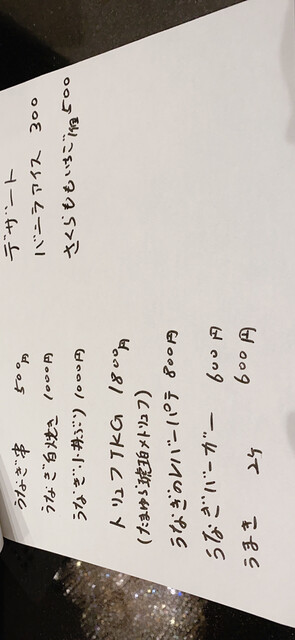 うなぎ串 500円
うなぎ白焼き 1000円
うなぎ小丼ぶり 1000円
トリュフTKG 1800円
(たまゆら琥珀×トリュフ)
うなぎのレバーパテ 800円
うなぎバーガー 600円
うまき 2ケ 600円
デザート
バニラアイス 300
さくらももいちご1個 500